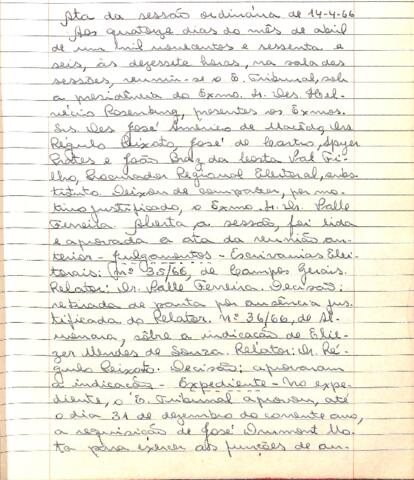 Ata da sessão ordinária de 14-4-66
Aos quatorze dias do mês de abril
de um mil novecentos e sessenta e
seis, às dezessete horas, na sala das
sessões, reuniu-se o E. Tribunal, sob
a presidência do Exmo. Sr. Des. Hel-
vécio Rosenburg, presentes os Exmos.
Srs. Des. José Américo de Macêdo, Drs.
Régulo Peixoto, José de Castro,
Prates e João Braz da Costa Val Fi-
lho, Procurador Regional Eleitoral, subs-
tituto. Deixou de comparecer, por mo-
tivo justificado, o Exmo. Sr. Dr. Valle
Ferreira. Aberta a sessão, foi lida
e aprovada a ata da reunião an-
terior - Julgamentos - Escrivanias Elei-
torais: nº 35/66, de Campos Gerais.
Relator: Dr. Valle Ferreira. Decisão:
retirada de pauta por ausência jus-
tificada do Relator. Nº 36/66, de Al-
menara, sôbre a indicação de Elie-
zer Mendes de Souza. Relator: Dr. Ré-
gulo Peixoto. Decisão: aprovaram
a indicação - Expediente - No expe-
diente, o E. Tribunal aprovou, até
o dia 31 de dezembro do corrente ano,
a requisição de José Drumont Mo-
ta para exercer as funções de au-